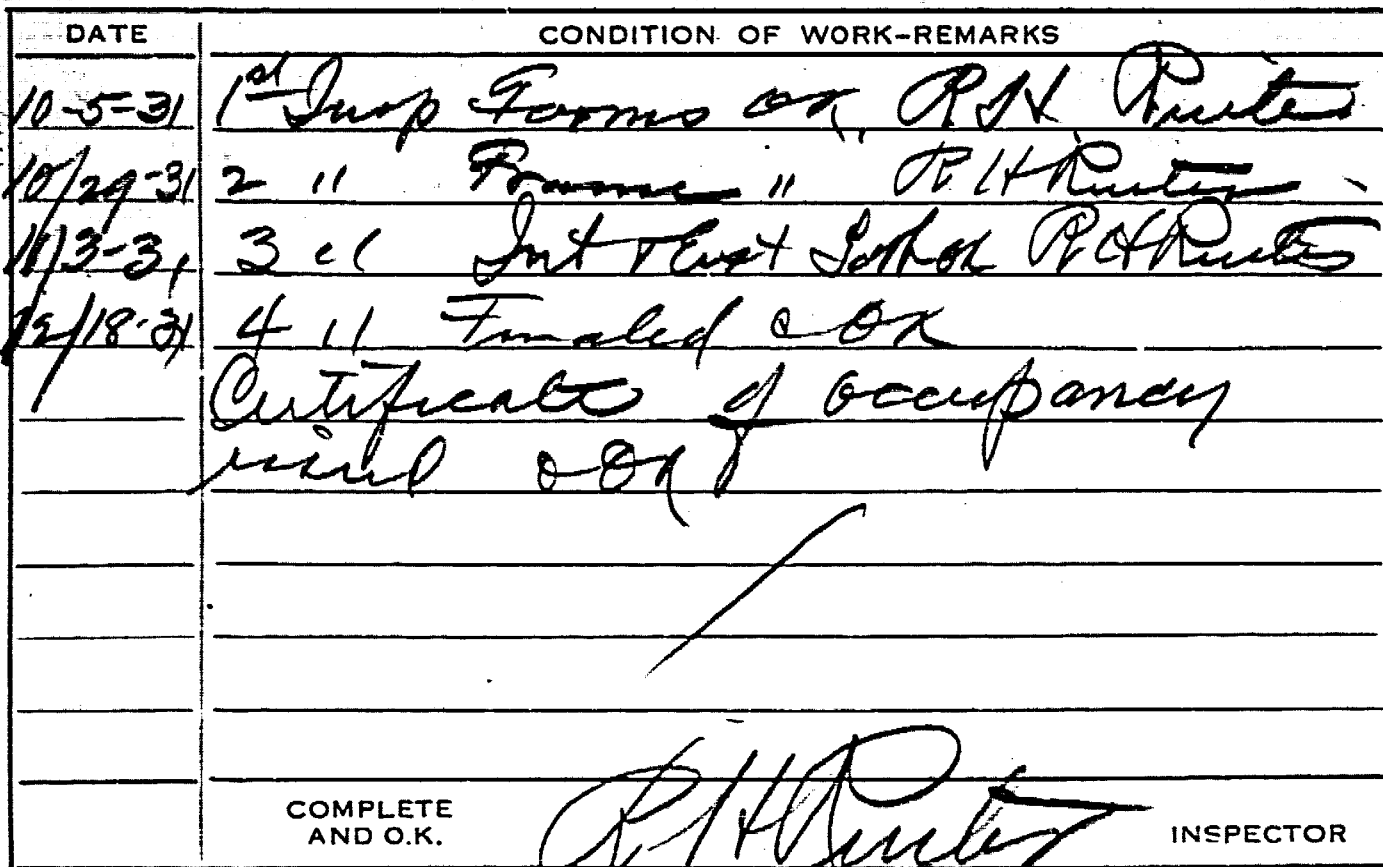 DATE CONDITION OF WORK-REMARKS
10-5-31 1st Insp Forms OK, R H
10/29-31 2 " Frame " R H
11/3-31 3 " Int & Ext Lath OK R H
12/18-31 4 " Finaled OK
Certificate of occupancy
OK
COMPLETE
AND O.K. R H INSPECTOR